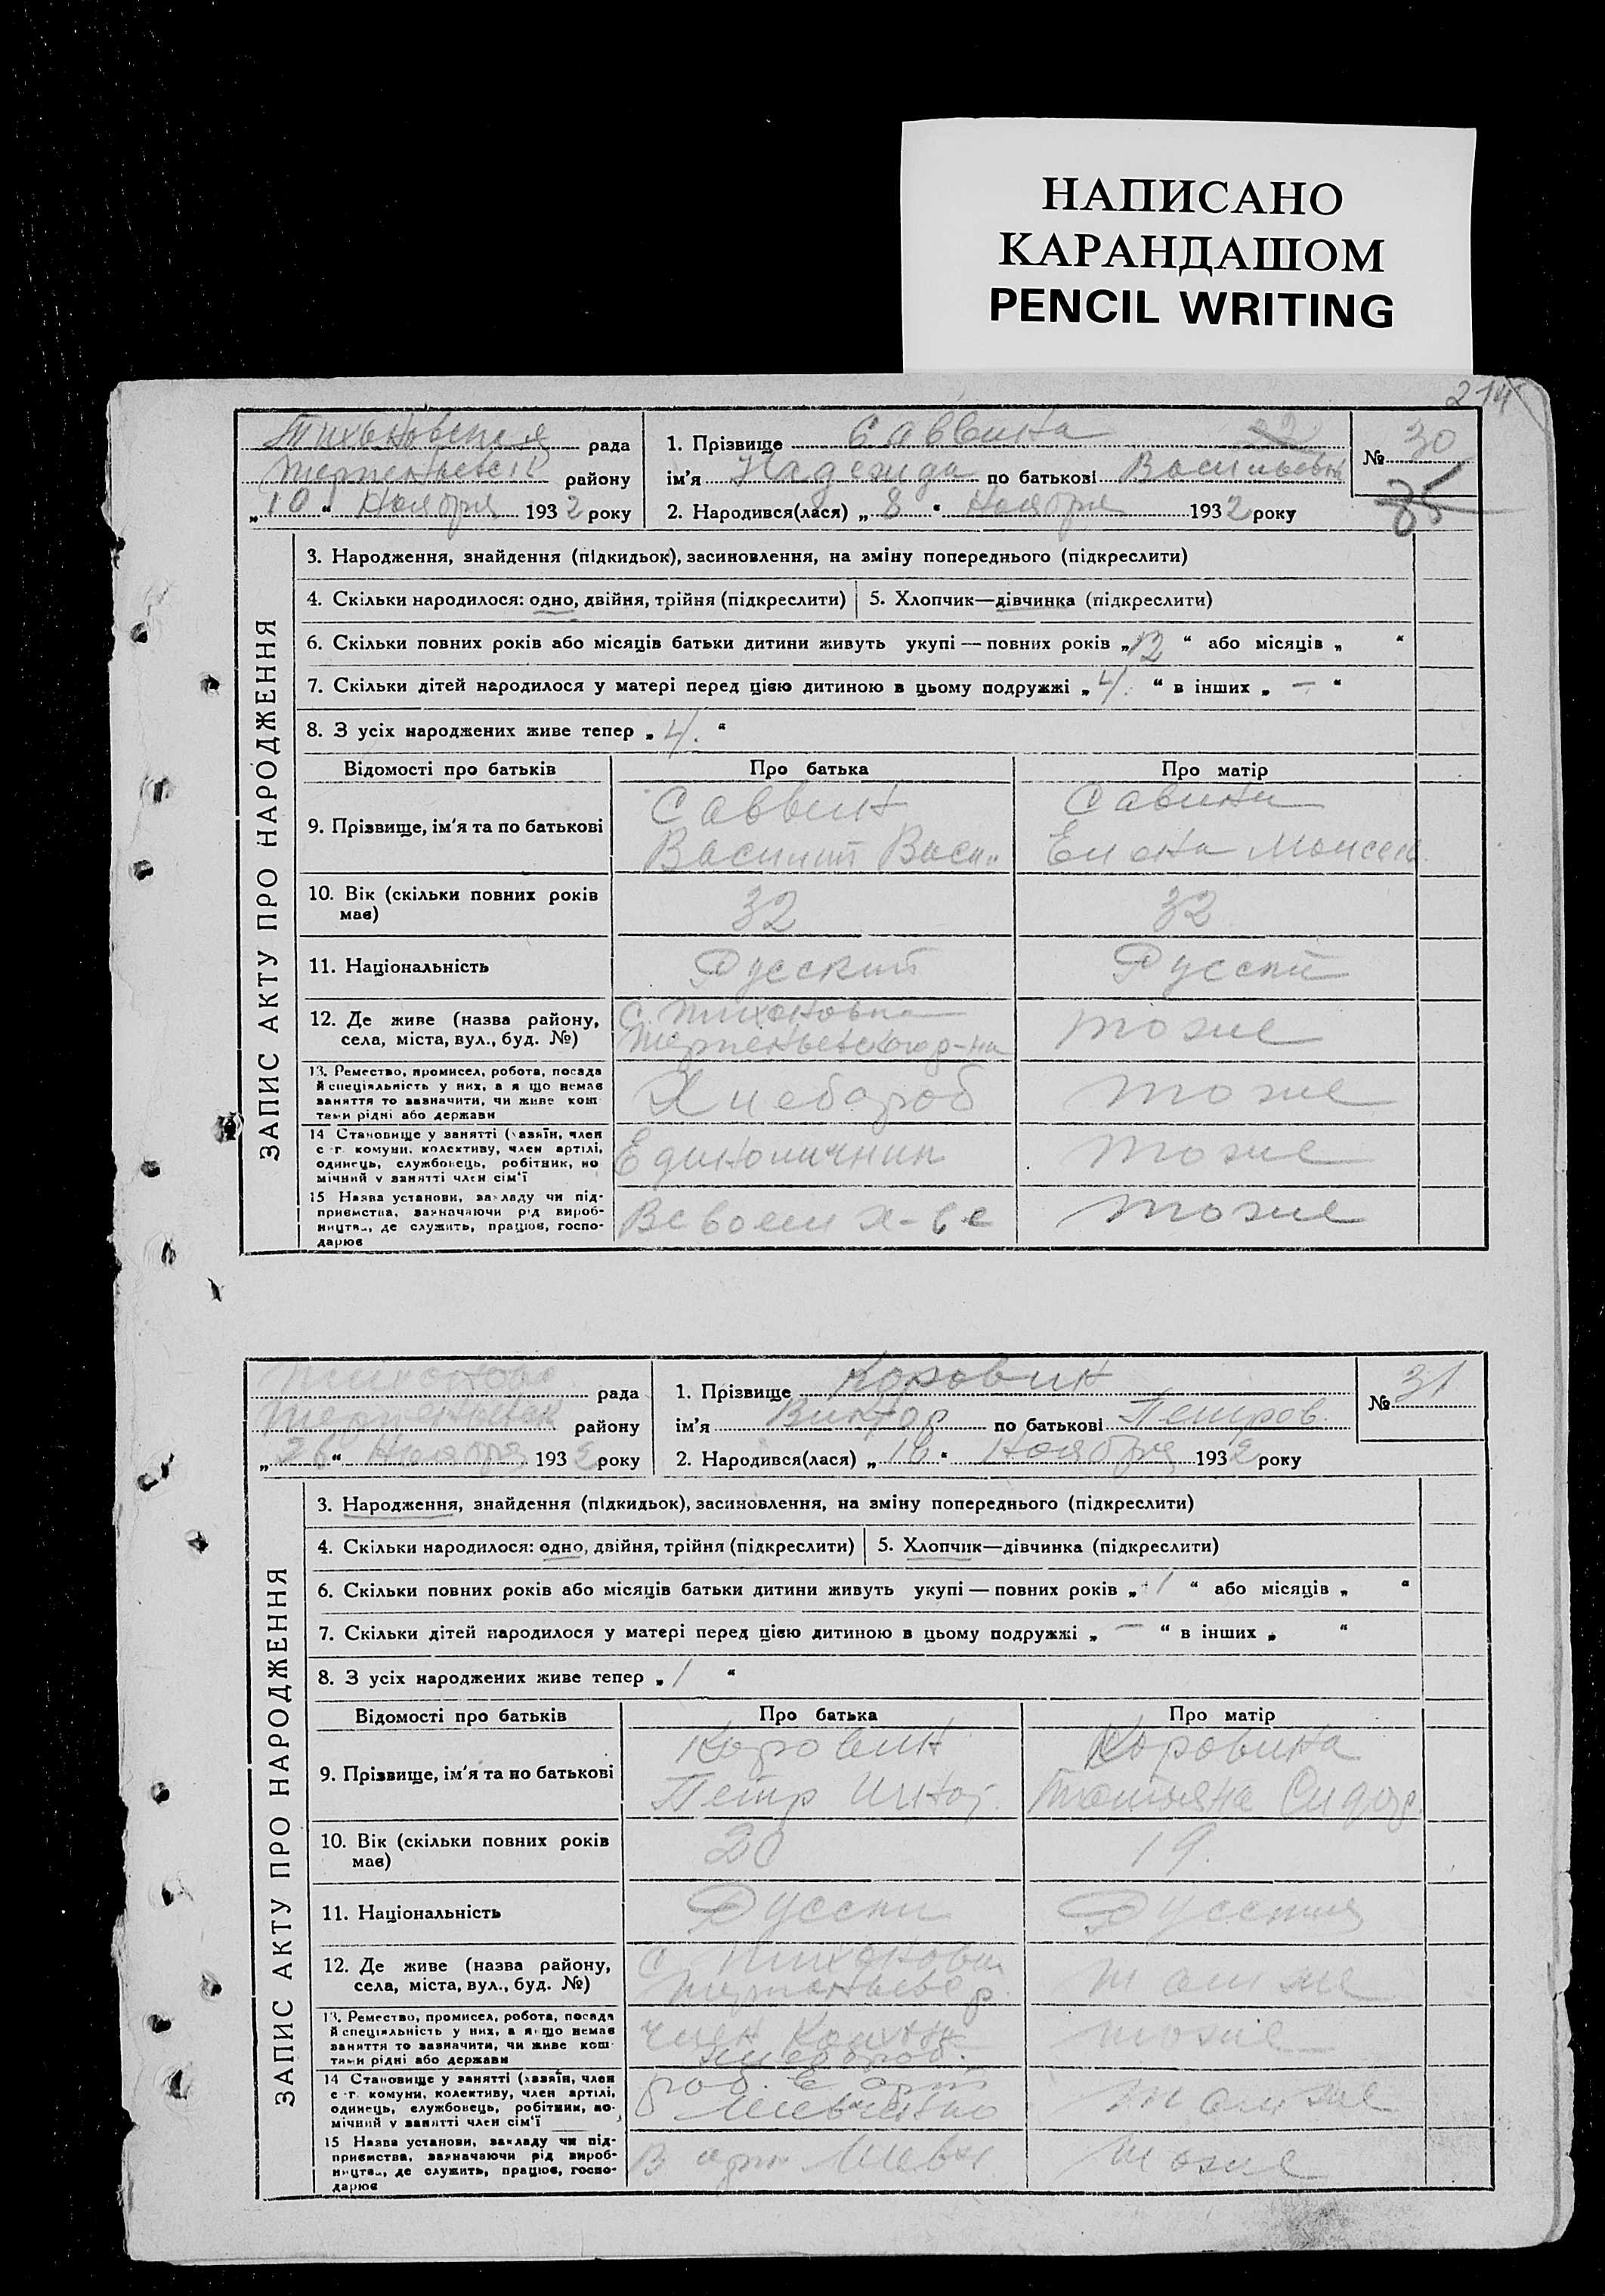 НАПИСАНО
КАРАНДАШОМ
PENCIL WRITING
214
Тихоновская рада
Терпеньевск району
„10" Ноября 1932 року
1. Прізвище Саввина
22
ім'я Надежда по батькові Васильевна
2. Народився(лася) „8" Ноября 1932 року
№ 30
85
ЗАПИС АКТУ ПРО НАРОДЖЕННЯ
3. Народження, знайдення (підкидьок), засиновлення, на зміну попереднього (підкреслити)
4. Скільки народилося: одно, двійня, трійня (підкреслити) 5. Хлопчик—дівчинка (підкреслити)
6. Скільки повних років або місяців батьки дитини живуть укупі — повних років „12" або місяців „ "
7. Скільки дітей народилося у матері перед цією дитиною в цьому подружжі „4." в інших „—"
8. З усіх народжених живе тепер „4."
Відомості про батьків Про батька Про матір
9. Прізвище, ім'я та по батькові
Саввин
Василий Васи
Савина
Елена Моисеев
10. Вік (скільки повних років
має)
32
32
11. Національність
Русский
Русски
12. Де живе (назва району,
села, міста, вул., буд. №)
с. Тихоновка
Терпеньевского р-на
тоже
13. Ремество, промисел, робота, посада
й спеціяльність у них, а я що немає
заняття то зазначити, чи живе кош
тами рідні або держави
Хлебороб
тоже
14 Становище у занятті (хазяїн, член
с -г. комуни, колективу, член артілі,
одинець, службовець, робітник, по
мічний у занятті член сім'ї
Единоличник
тоже
15 Назва установи, закладу чи під-
приємства, зазначаючи рід вироб-
ництва, де служить, працює, госпо-
дарює
В своем х-ве
тоже
Тихоновс рада
Терпеньевск району
„26" Ноября 1932 року
1. Прізвище Коровин
ім'я Виктор по батькові Петров.
2. Народився(лася) „10" Ноября 1932 року
№ 31
ЗАПИС АКТУ ПРО НАРОДЖЕННЯ
3. Народження, знайдення (підкидьок), засиновлення, на зміну попереднього (підкреслити)
4. Скільки народилося: одно, двійня, трійня (підкреслити) 5. Хлопчик—дівчинка (підкреслити)
6. Скільки повних років або місяців батьки дитини живуть укупі — повних років „1" або місяців „ "
7. Скільки дітей народилося у матері перед цією дитиною в цьому подружжі „—" в інших „ "
8. З усіх народжених живе тепер „1"
Відомості про батьків Про батька Про матір
9. Прізвище, ім'я та по батькові
Коровин
Петр
Коровина
Татьяна Сидор
10. Вік (скільки повних років
має)
20
19.
11. Національність
Русски
Русская
12. Де живе (назва району,
села, міста, вул., буд. №)
с Тихоновка
Терпеньевс р.
там же
13. Ремество, промисел, робота, посада
й спеціяльність у них, а якщо немає
заняття то зазначити, чи живе кош
тами рідні або держави
член
хлебороб.
тоже
14 Становище у занятті (хазяїн, член
с -г. комуни, колективу, член артілі,
одинець, службовець, робітник, по-
мічний у занятті член сім'ї
там же
15 Назва установи, закладу чи під-
приємства, зазначаючи рід вироб-
ництва, де служить, працює, госпо-
дарює
В арт Шевч
тоже